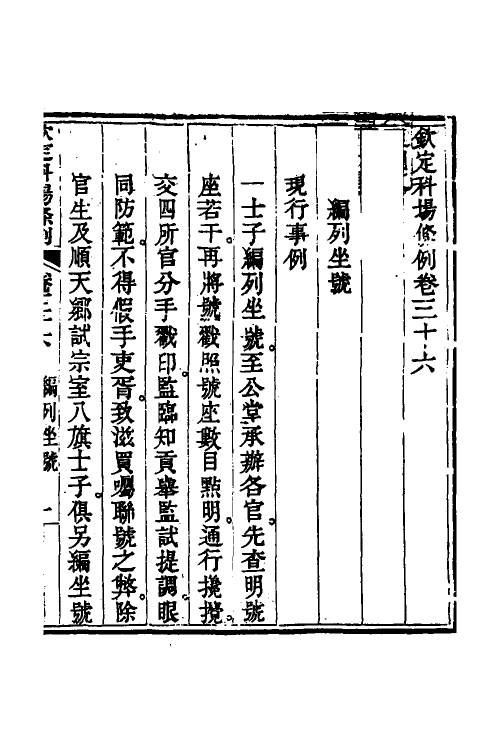 欽定科場條例卷三十六
編列坐號
現行事例
一士子編列坐號。至公堂承辦各官先查明號
座若干。再將號戳照號座數目點明。通行攪攪。
交四所官分手戳印。監臨知貢舉監試提調。眼
同防範。不得假手吏胥。致滋買囑聯號之弊。除
官生及順天鄉試宗室八旗士子。俱另編坐號
欽定科場條例
卷三十六 編列坐號
一